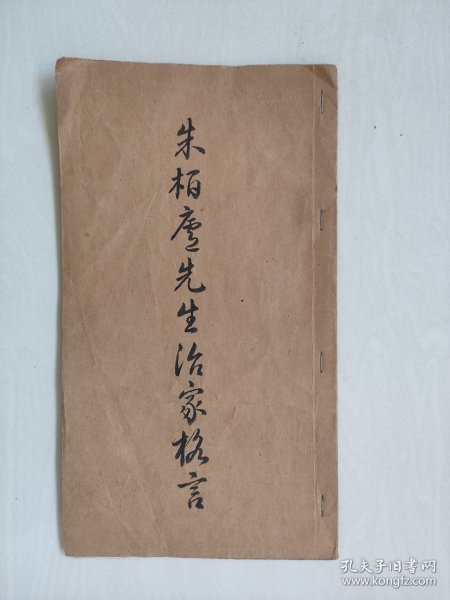 朱柏廬先生治家格言
孔夫子旧书网
www.kongfz.com